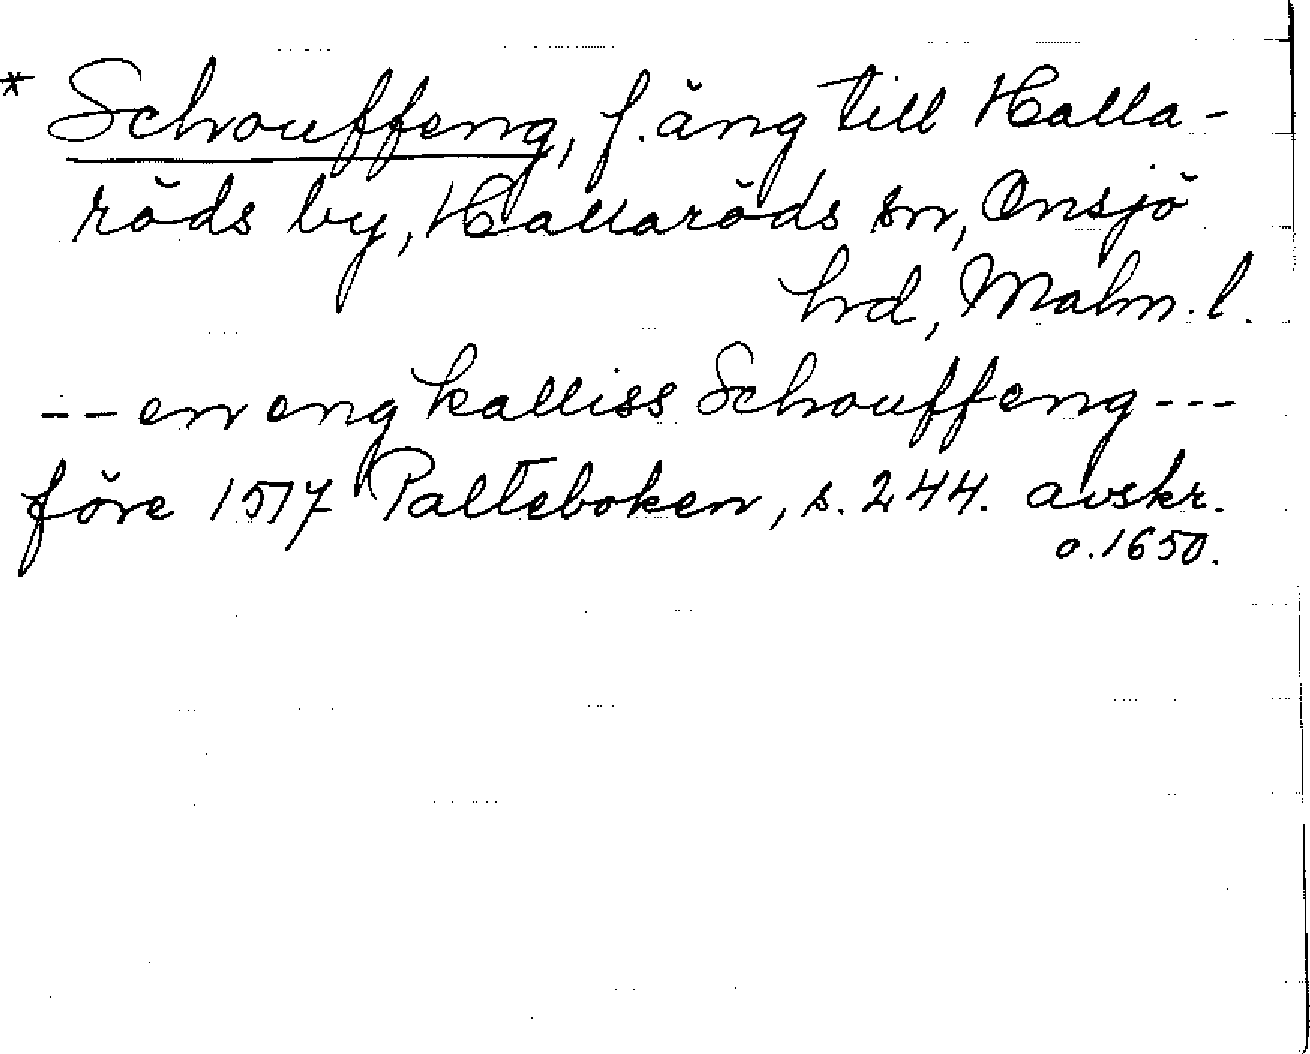 * Schouffeng, f. äng till Halla-
röds by, Hallaröds sn, Onsjö
hrd, Malm. l.
-- en eng kalliss Schouffeng ---
före 1517 Palteboken, s. 244. avskr.
o. 1650.